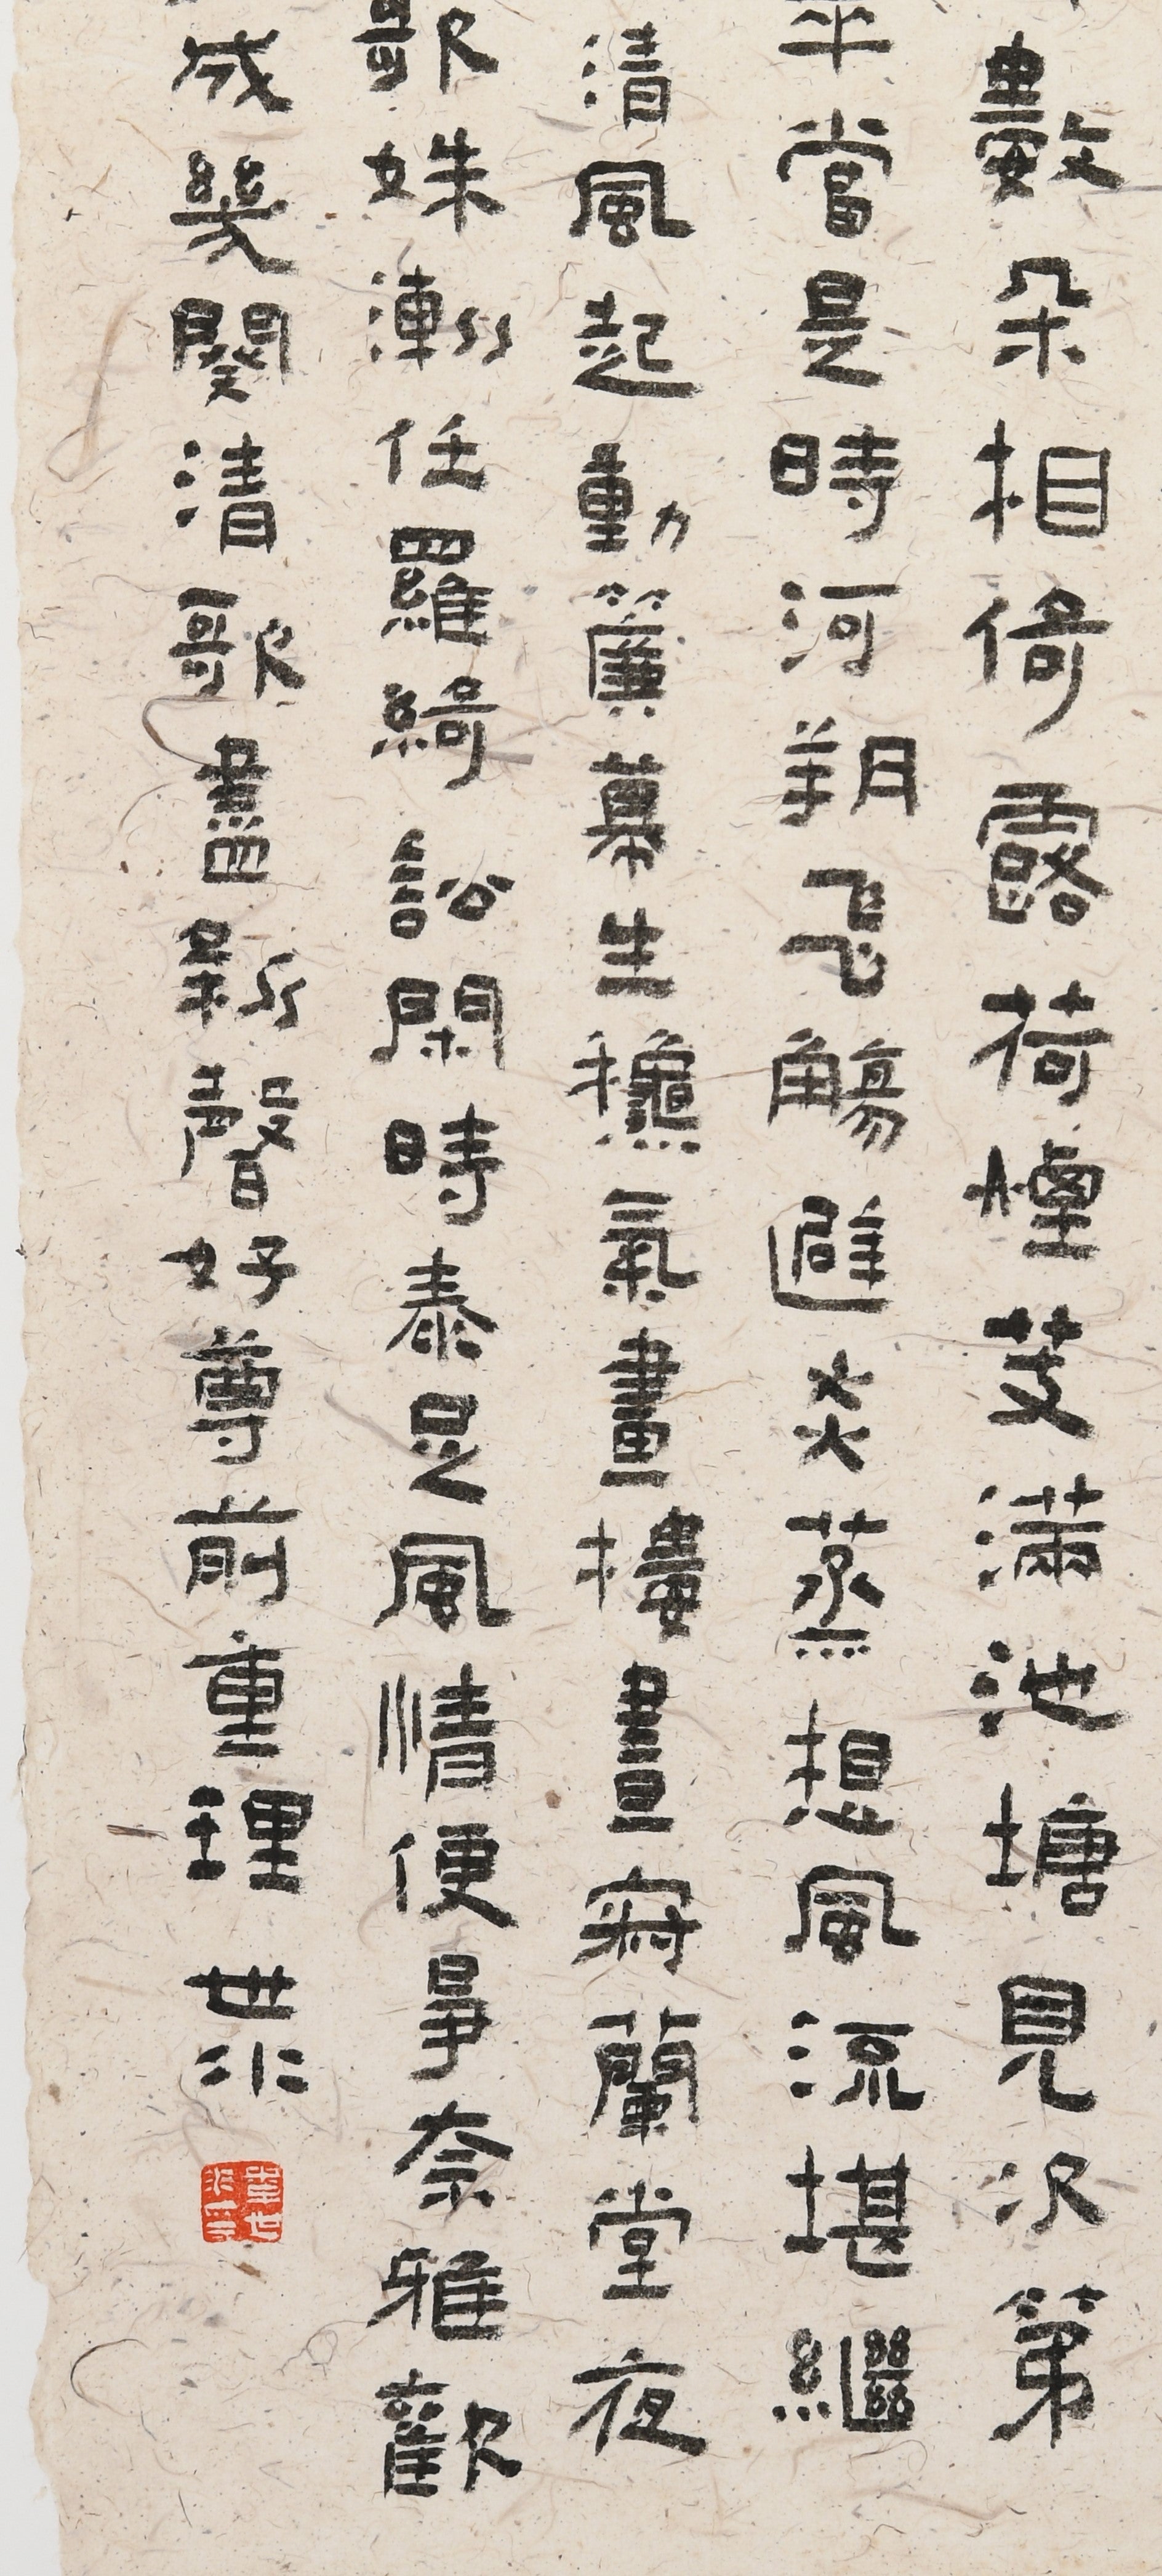 數朵相倚露荷煙芰滿池塘見次第
當是時河朔飛觴避炎蒸想風流堪繼
清風起動簾幕生龝氣畫樓晝寂蘭堂夜
歌姝漸任羅綺訟閑時泰足風情便爭奈雅歡
成幾闋清歌盡新聲好尊前重理